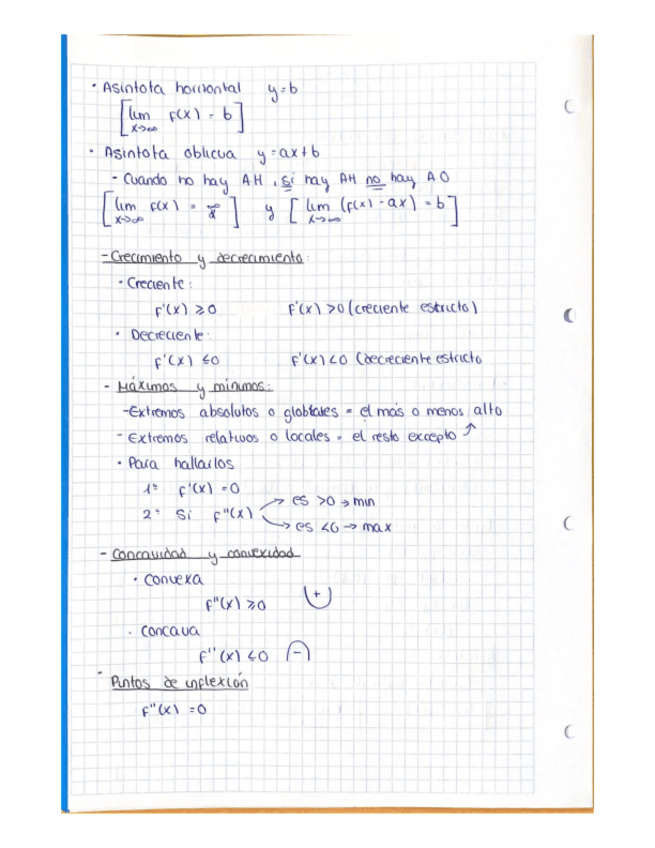 · Asintota horizontal y=b
[lim x→∞ f(x) = b]
· Asintota oblicua y=ax+b
- Cuando no hay AH, si hay AH no hay AO
[lim x→∞ f(x) = ] y [lim x→∞ (f(x)-ax) = b]
- Crecimiento y decrecimiento:
· Creciente:
f'(x) ≥ 0 f'(x) > 0 (creciente estricto)
· Decreciente:
f'(x) ≤ 0 f'(x) < 0 (decreciente estricto
- Máximos y mínimos:
- Extremos absolutos o = el más o menos alto
- Extremos relativos o locales = el resto excepto ↗
· Para hallarlos
1º f'(x) = 0
2º Si f''(x) → es >0 → min
→ es <0 → max
- Concavidad y convexidad
· Convexa
f''(x) ≥ 0 +
· Concava
f''(x) ≤ 0 −
- Puntos de inflexión
f''(x) = 0